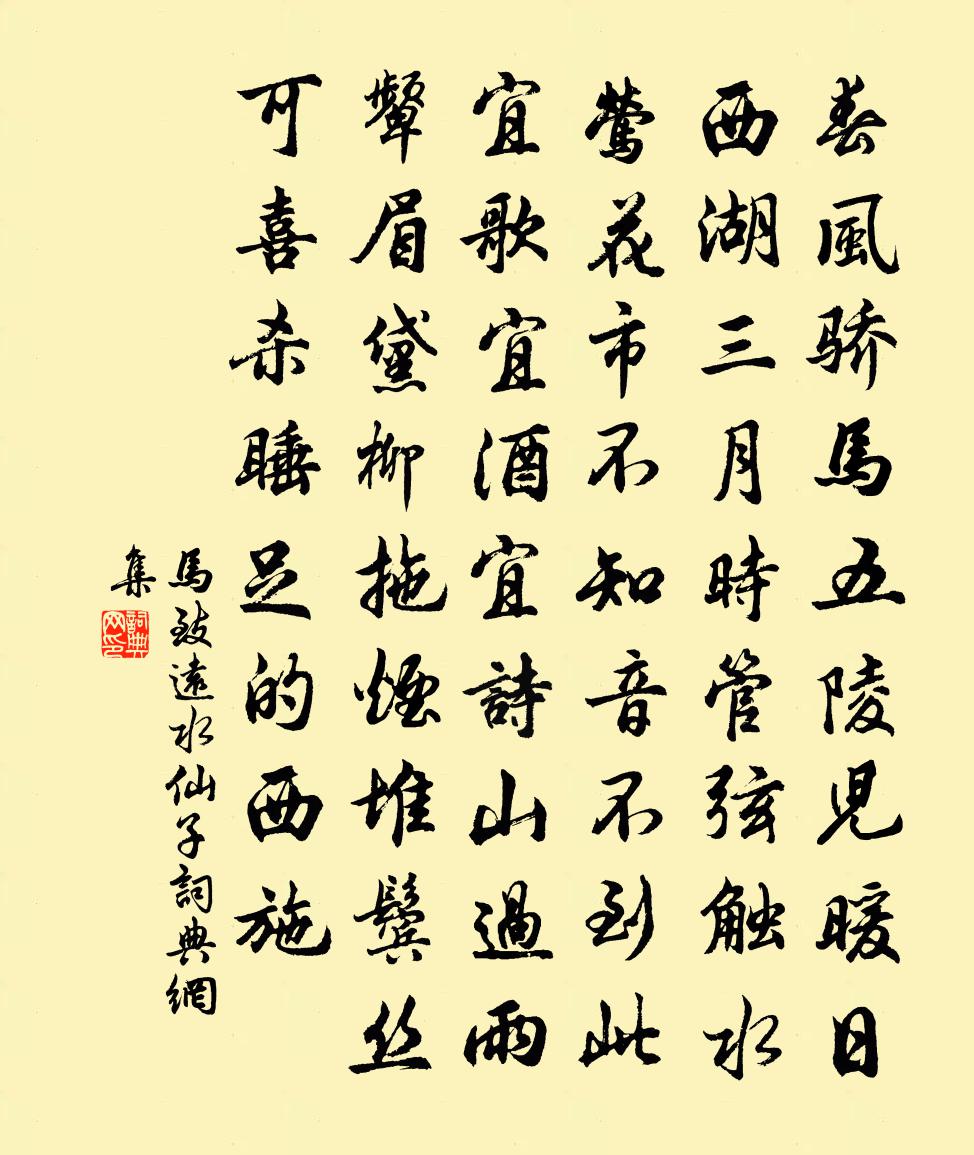 春風骄馬五陵児暖日
西湖三月時管弦触水
莺花市不知音不到此
宜歌宜酒宜詩山過雨
颦眉黛柳拖煙堆鬓丝
可喜杀睡足的西施
馬致遠水仙子詞典網
集
詞典网印